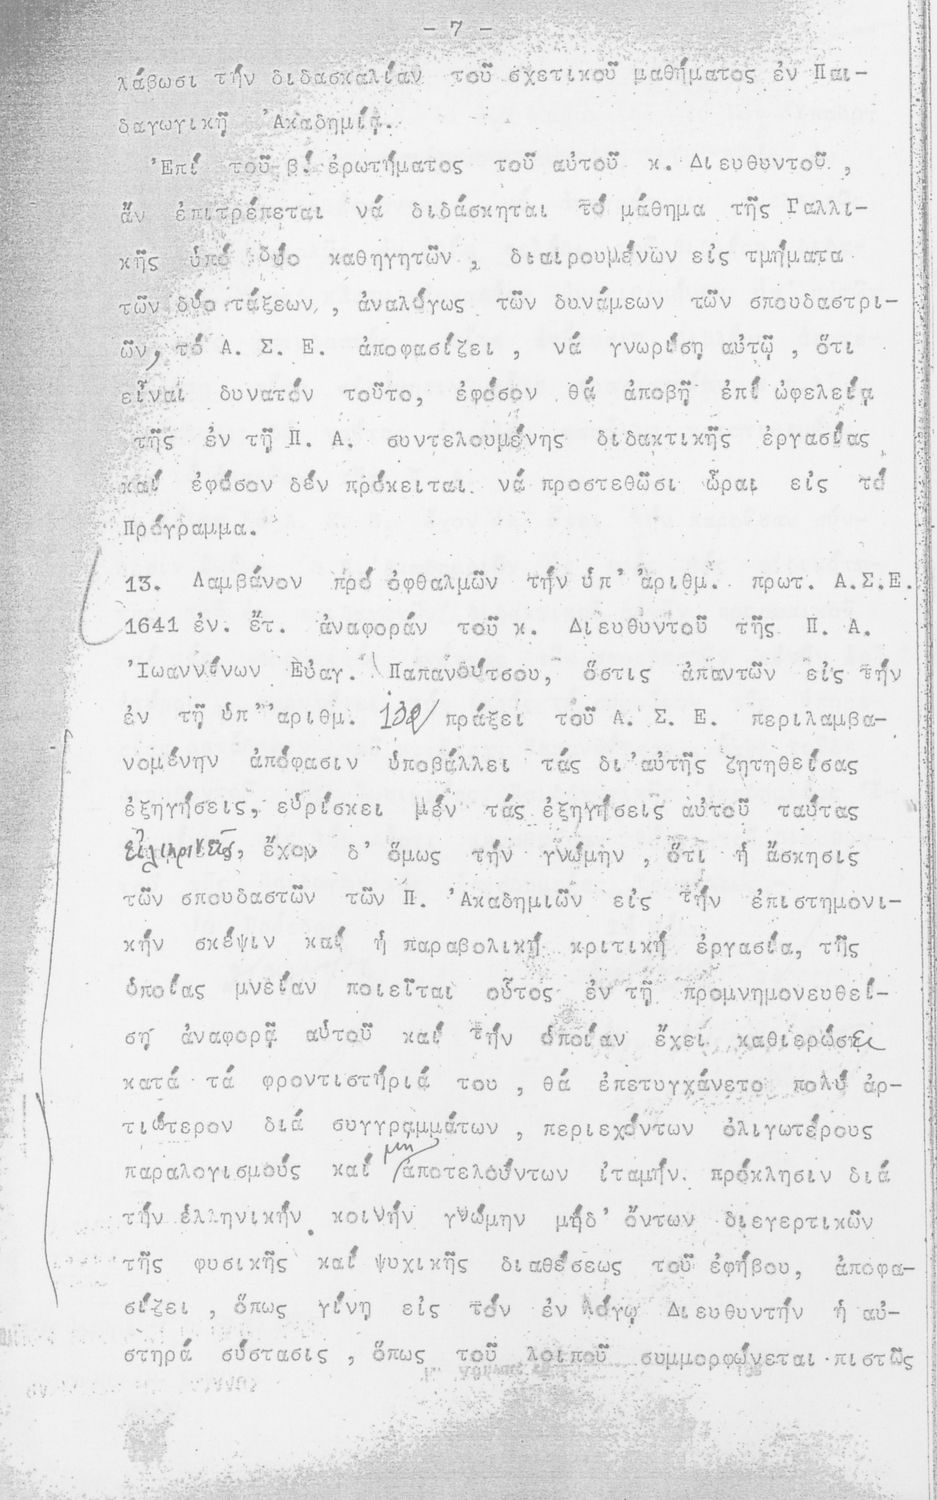 - 7 -
λάβωσι τήν διδασκαλίαν τοῦ σχετικοῦ μαθήματος ἐν Παι-
δαγωγικῇ Ἀκαδημίᾳ.
Ἐπί τοῦ β΄. ἐρωτήματος τοῦ αὐτοῦ κ. Διευθυντοῦ ,
ἄν ἐπιτρέπεται νά διδάσκηται τό μάθημα τῆς Γαλλι-
κῆς ὑπό δύο καθηγητῶν , διαιρουμένων εἰς τμήματα
τῶν δύο τάξεων, , ἀναλόγως τῶν δυνάμεων τῶν σπουδαστρι-
ῶν, τό Α. Σ. Ε. ἀποφασίζει , νά γνωρίσῃ αὐτῷ , ὅτι
εἶναι δυνατόν τοῦτο, ἐφόσον θά ἀποβῇ ἐπί ὠφελείᾳ
τῆς ἐν τῇ Π. Α. συντελουμένης διδακτικῆς ἐργασίας
καί ἐφόσον δέν πρόκειται νά προστεθῶσι ὧραι εἰς τό
Πρόγραμμα.
13. Λαμβάνον πρό ὀφθαλμῶν τήν ὑπ' ἀριθμ. πρωτ. Α.Σ.Ε.
1641 ἐν. ἔτ. ἀναφοράν τοῦ κ. Διευθυντοῦ τῆς Π. Α.
Ἰωαννίνων Εὐαγ. Παπανούτσου, ὅστις ἀπαντῶν εἰς τήν
ἐν τῇ ὑπ' ἀριθμ. 132 πράξει τοῦ Α. Σ. Ε. περιλαμβα-
νομένην ἀπόφασιν ὑποβάλλει τάς δι'αὐτῆς ζητηθείσας
ἐξηγήσεις, εὑρίσκει μέν τάς ἐξηγήσεις αὐτοῦ ταύτας
εἰλικρινεῖς, ἔχον δ' ὅμως τήν γνώμην , ὅτι ἡ ἄσκησις
τῶν σπουδαστῶν τῶν Π. Ἀκαδημιῶν εἰς τήν ἐπιστημονι-
κήν σκέψιν καί ἡ παραβολική κριτική ἐργασία, τῆς
ὁποίας μνείαν ποιεῖται οὗτος ἐν τῇ προμνημονευθεί-
σῃ ἀναφορᾷ αὐτοῦ καί τήν ὁποίαν ἔχει καθιερώσει
κατά τά φροντιστήριά του , θά ἐπετυγχάνετο πολύ ἀρ-
τιώτερον διά συγγραμμάτων , περιεχόντων ὀλιγωτέρους
παραλογισμούς καί μή ἀποτελούντων ἰταμήν πρόκλησιν διά
τήν ἑλληνικήν κοινήν γνώμην μηδ' ὄντων διεγερτικῶν
τῆς φυσικῆς καί ψυχικῆς διαθέσεως τοῦ ἐφήβου, ἀποφα-
σίζει , ὅπως γίνῃ εἰς τόν ἐν λόγῳ Διευθυντήν ἡ αὐ-
στηρά σύστασις , ὅπως τοῦ λοιποῦ συμμορφώνεται πιστῶς